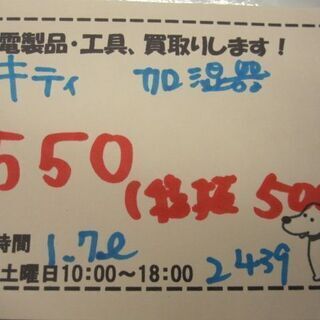 電製品・工具、買取りします！
キティ 加湿器
550
(税抜 500
時間 1.7ℓ
土曜日10:00～18:00 2439